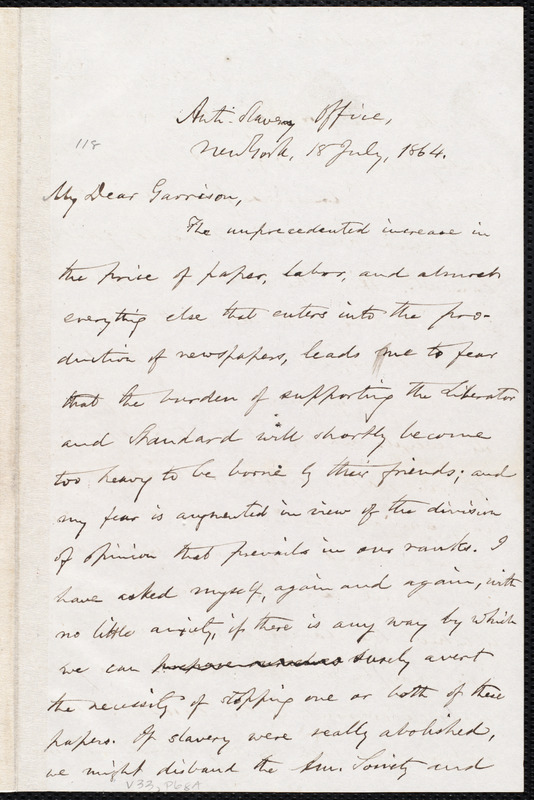 Anti-Slavery Office,
New York, 18 July, 1864.
118
My Dear Garrison,
The unprecedented increase in
the price of paper, labor, and almost
everything else that enters into the pro-
duction of newspapers, leads me to fear
that the burden of supporting the Liberator
and Standard will shortly become
too heavy to be borne by their friends; and
my fear is augmented in view of the division
of opinion that prevails in our ranks. I
have asked myself, again and again, with
no little anxiety, if there is any way by which
we can surely avert
the necessity of stopping one or both of these
papers. If slavery were really abolished,
we might disband the Am. Society and
V33, P68A